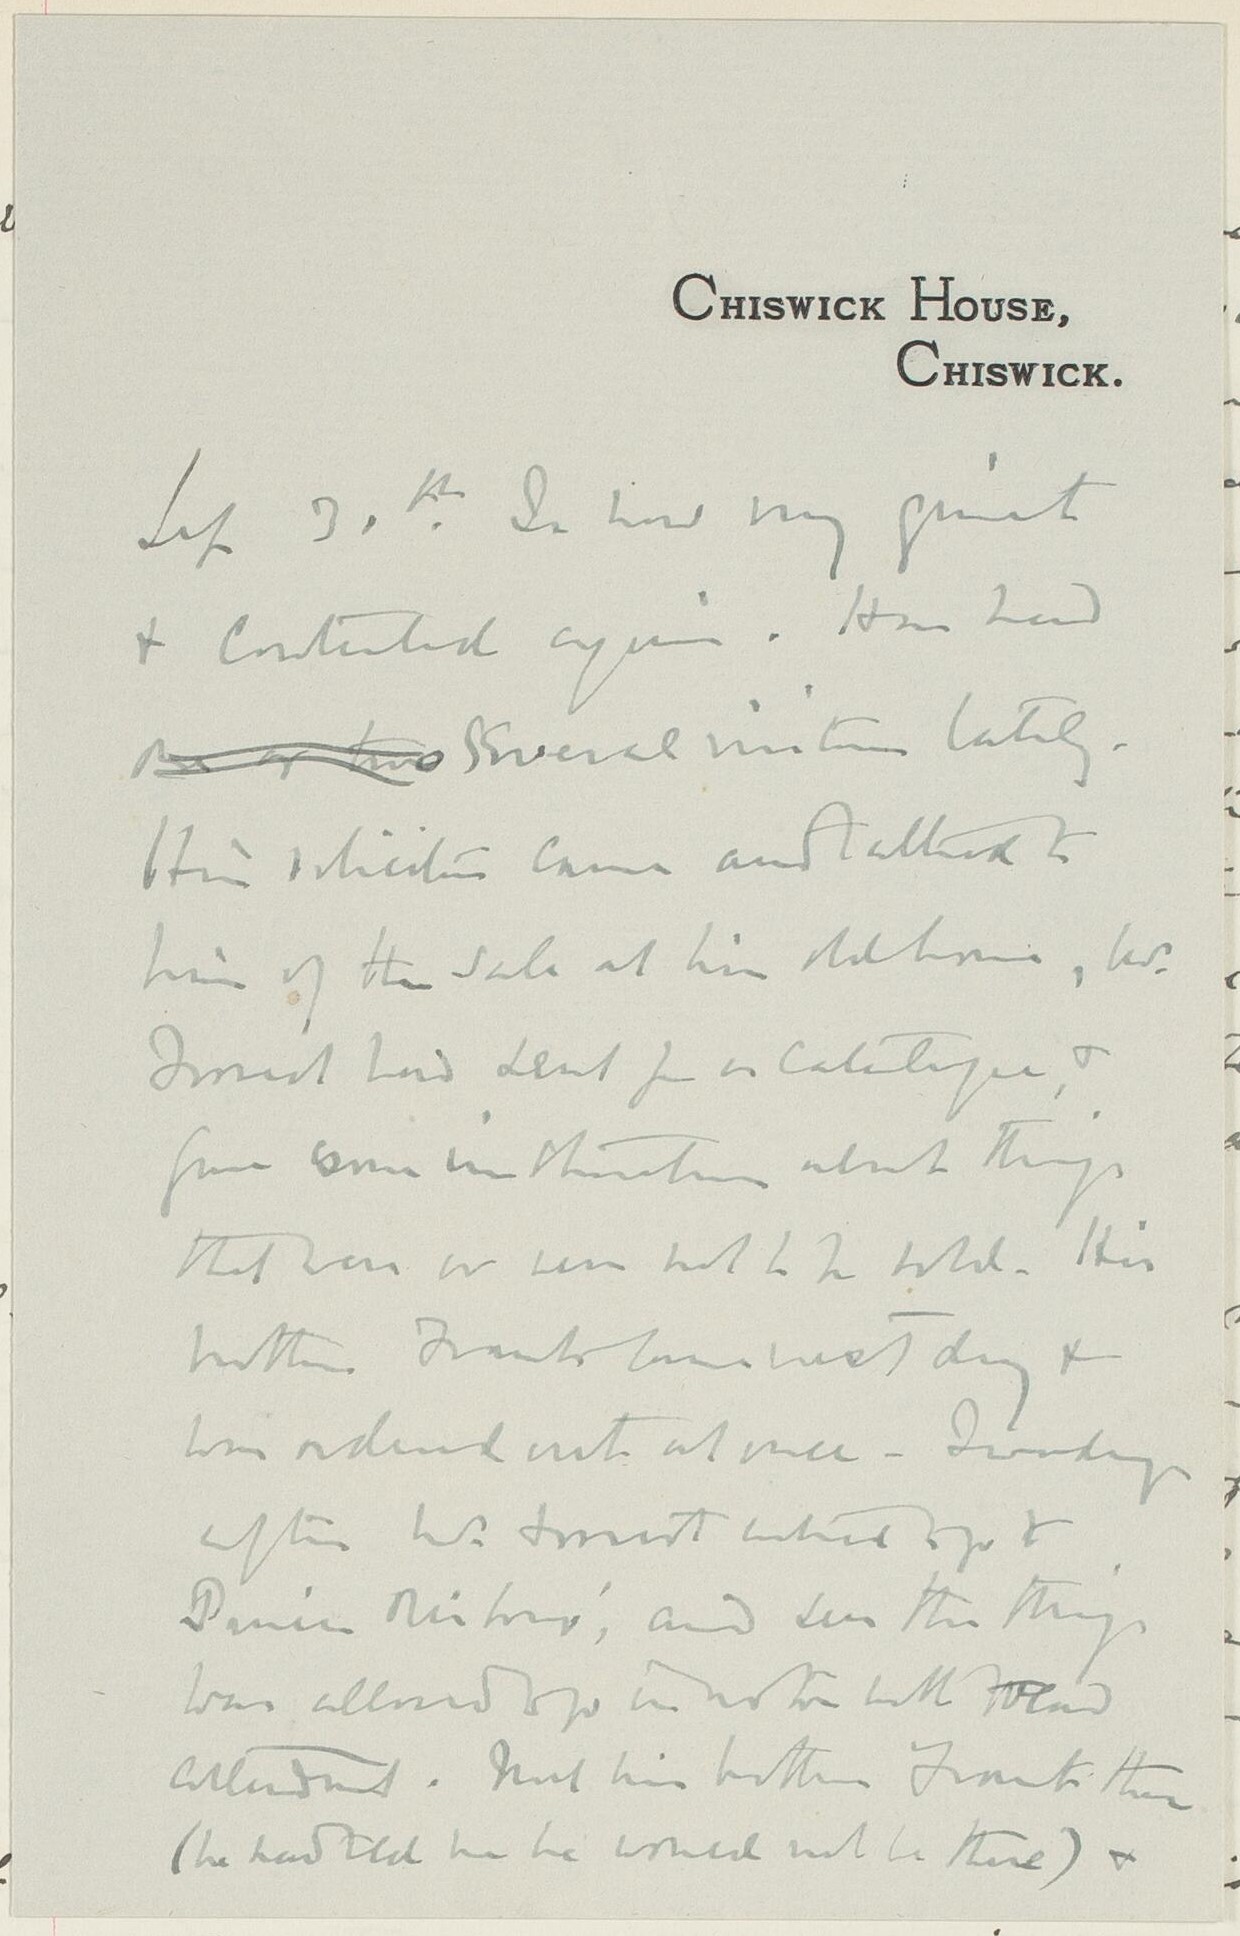 CHISWICK HOUSE,
CHISWICK.
Sep 30th. Is now very quiet
& contented again. Has had
one or two Several visitors lately.
His solicitor came and talked to
him of the sale at his old home, Mr.
had sent for a Catalogue, &
gave some instructions about things
that were or were not to be sold. His
brother Frank came next day &
was ordered out at once - Two days
after Mr. asked to go to
and see the things
was allowed to go in motor with Head
attendant. Met his brother Frank there
(he had told me he would not be there) &